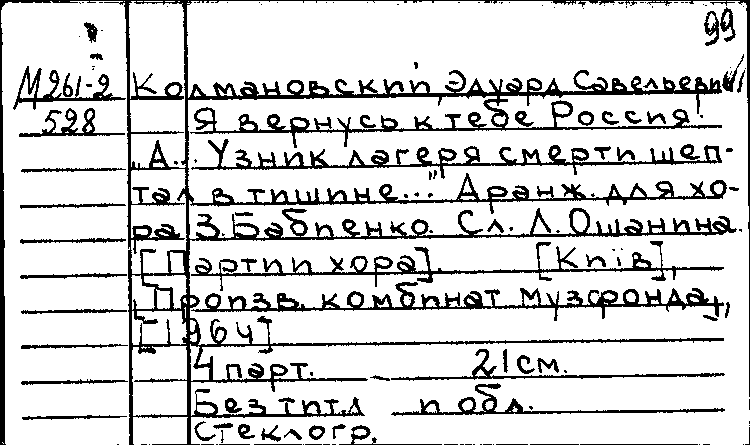 99
М261-2 Колмановский, Эдуард Савельевич
528 Я вернусь к тебе Россия!
„А... Узник лагеря смерти шеп-
тал в тишине..." Аранж. для хо-
ра З. Бабиенко. Сл. Л. Ошанина.
[Партии хора]. [Київ],
"Произв. комбинат музфонда",
[1964]
4 парт. 21 см.
Без тит. л и обл.
Стеклогр.